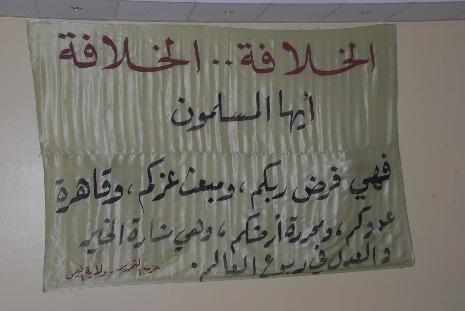 الخلافة.. الخلافة
أيها المسلمون
فهي فرض ربكم، ومبعث عزكم، وقاهرة
عدوكم، ومحررة أرضكم، وهي منارة الخير
والعدل في ربوع العالم.
حزب التحرير - ولاية اليمن